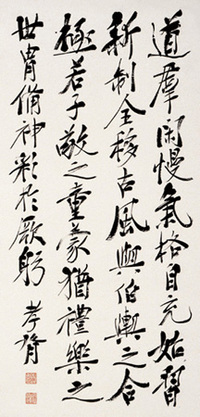 道羣閑慢氣格自充始習
新制全移古風與伯輿之合
極若子敬之重蒙猶禮樂之
世胄備神彩於厥躬 孝胥